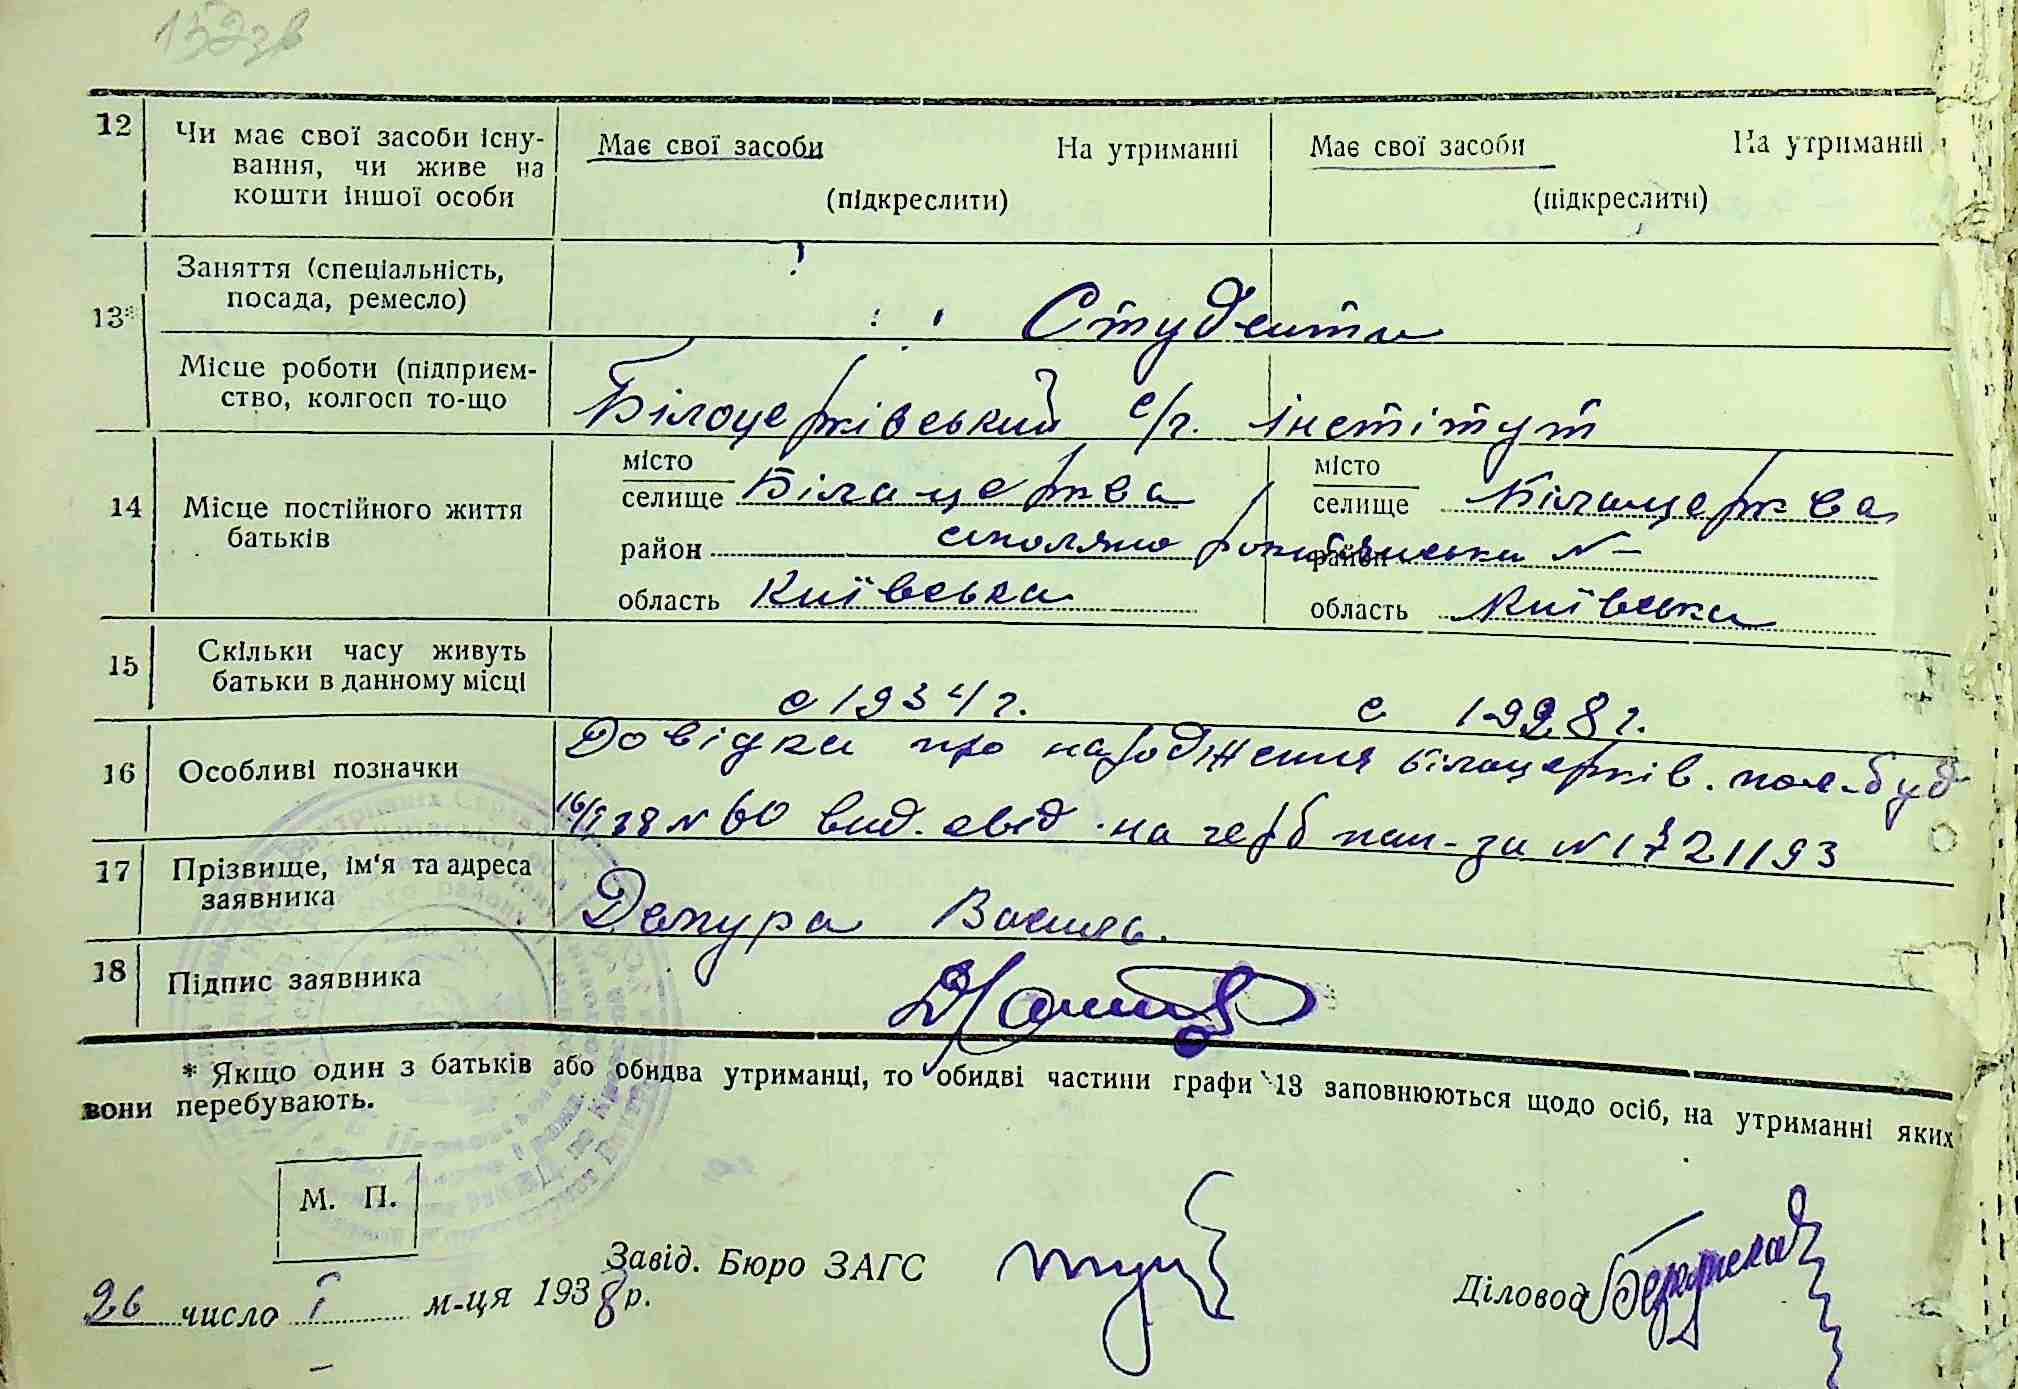 12 Чи має свої засоби існу-
вання, чи живе на
кошти іншої особи
Має свої засоби На утриманні
(підкреслити)
Має свої засоби На утриманні
(підкреслити)
13* Заняття (спеціальність,
посада, ремесло)
Студенти
Місце роботи (підприєм-
ство, колгосп то-що
Білоцерківський с/г. інстітут
14 Місце постійного життя
батьків
місто
селище Білацерква
район
область Київська
місто
селище Білацерква
район
область Київська
15 Скільки часу живуть
батьки в данному місці
с 1934 г. с 1928 г.
16 Особливі позначки
Довідка про народження білоцерків. пол-буд
16/I 38 N 60 вид. свід. на герб пап-за N 1721193
17 Прізвище, ім'я та адреса
заявника
Демура Василь.
18 Підпис заявника
* Якщо один з батьків або обидва утриманці, то обидві частини графи 13 заповнюються щодо осіб, на утриманні яких
вони перебувають.
М. П.
Завід. Бюро ЗАГС
Діловод
26 число I м-ця 1938 р.